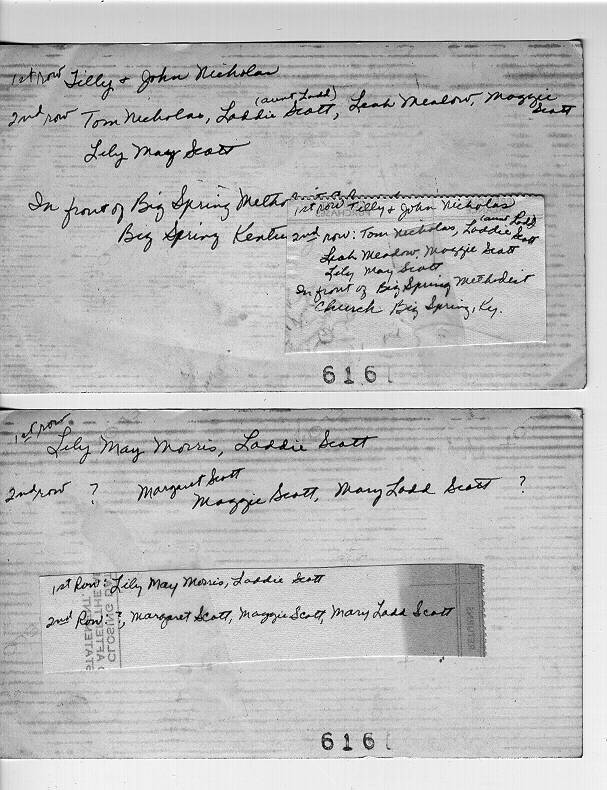 1st row Tilly & John Nicholas
(aunt Ladd)
2nd row Tom Nicholas, Laddie Scott, Leah Meadow, Maggie Scott
Lily May Scott
In front of Big Spring Metho
Big Spring Kentu
1st row Tilly & John Nicholas
(aunt Ladd)
2nd row: Tom Nicholas, Laddie Scott
Leah Meadow, Maggie Scott
Lily May Scott
In front of Big Spring Methodist
Church Big Spring, Ky.
616
1st row
Lily May Morris, Laddie Scott
2nd row ? Margaret Scott
Maggie Scott, Mary Ladd Scott ?
1st Row - Lily May Morris, Laddie Scott
2nd Row ?, Margaret Scott, Maggie Scott, Mary Ladd Scott
STATEMENT
AFTER THE
CLOSING DA
616